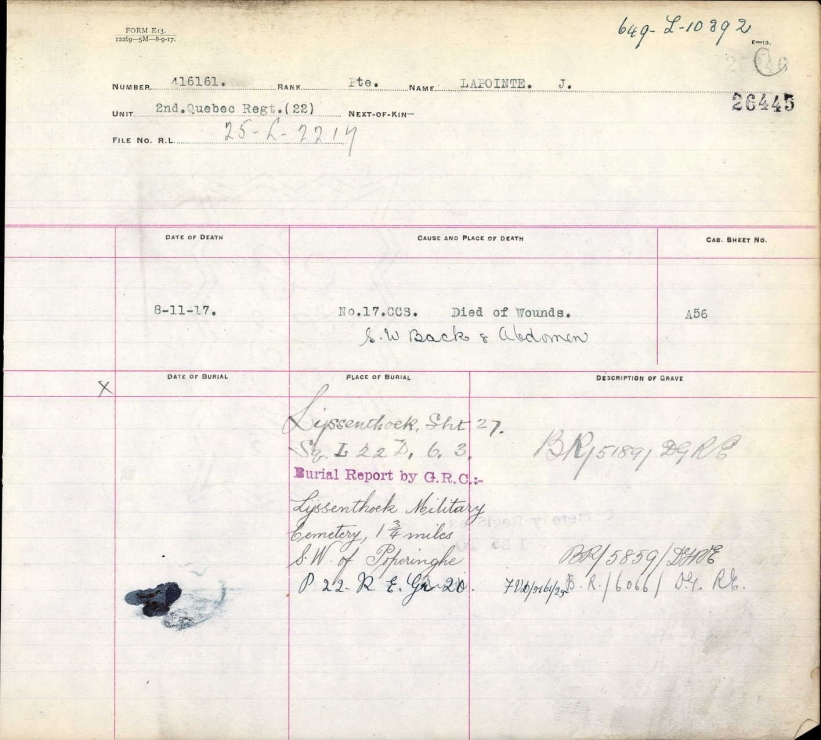 FORM E13.
12269—5M—8-9-17.
649-L-10392
E—13.
26445
NUMBER 416161. RANK Pte. NAME LAPOINTE. J.
UNIT 2nd.Quebec Regt.(22) NEXT-OF-KIN—
FILE NO. R.L. 25-L-2217
DATE OF DEATH CAUSE AND PLACE OF DEATH CAS. SHEET NO.
8-11-17. No.17.CCS. Died of Wounds. A56
S.W Back & Abdomen
X DATE OF BURIAL PLACE OF BURIAL DESCRIPTION OF GRAVE
Lijssenthoek, Sht 27.
Sq. L 22 D. 6. 3. BR/5189/DGRE
Burial Report by G.R.C:-
Lijssenthoek Military
Cemetery, 1 3/4 miles
S.W. of Poperinghe BR/5859/
P 22. R E. Gr 20. B.R./6066/D.G.RE.